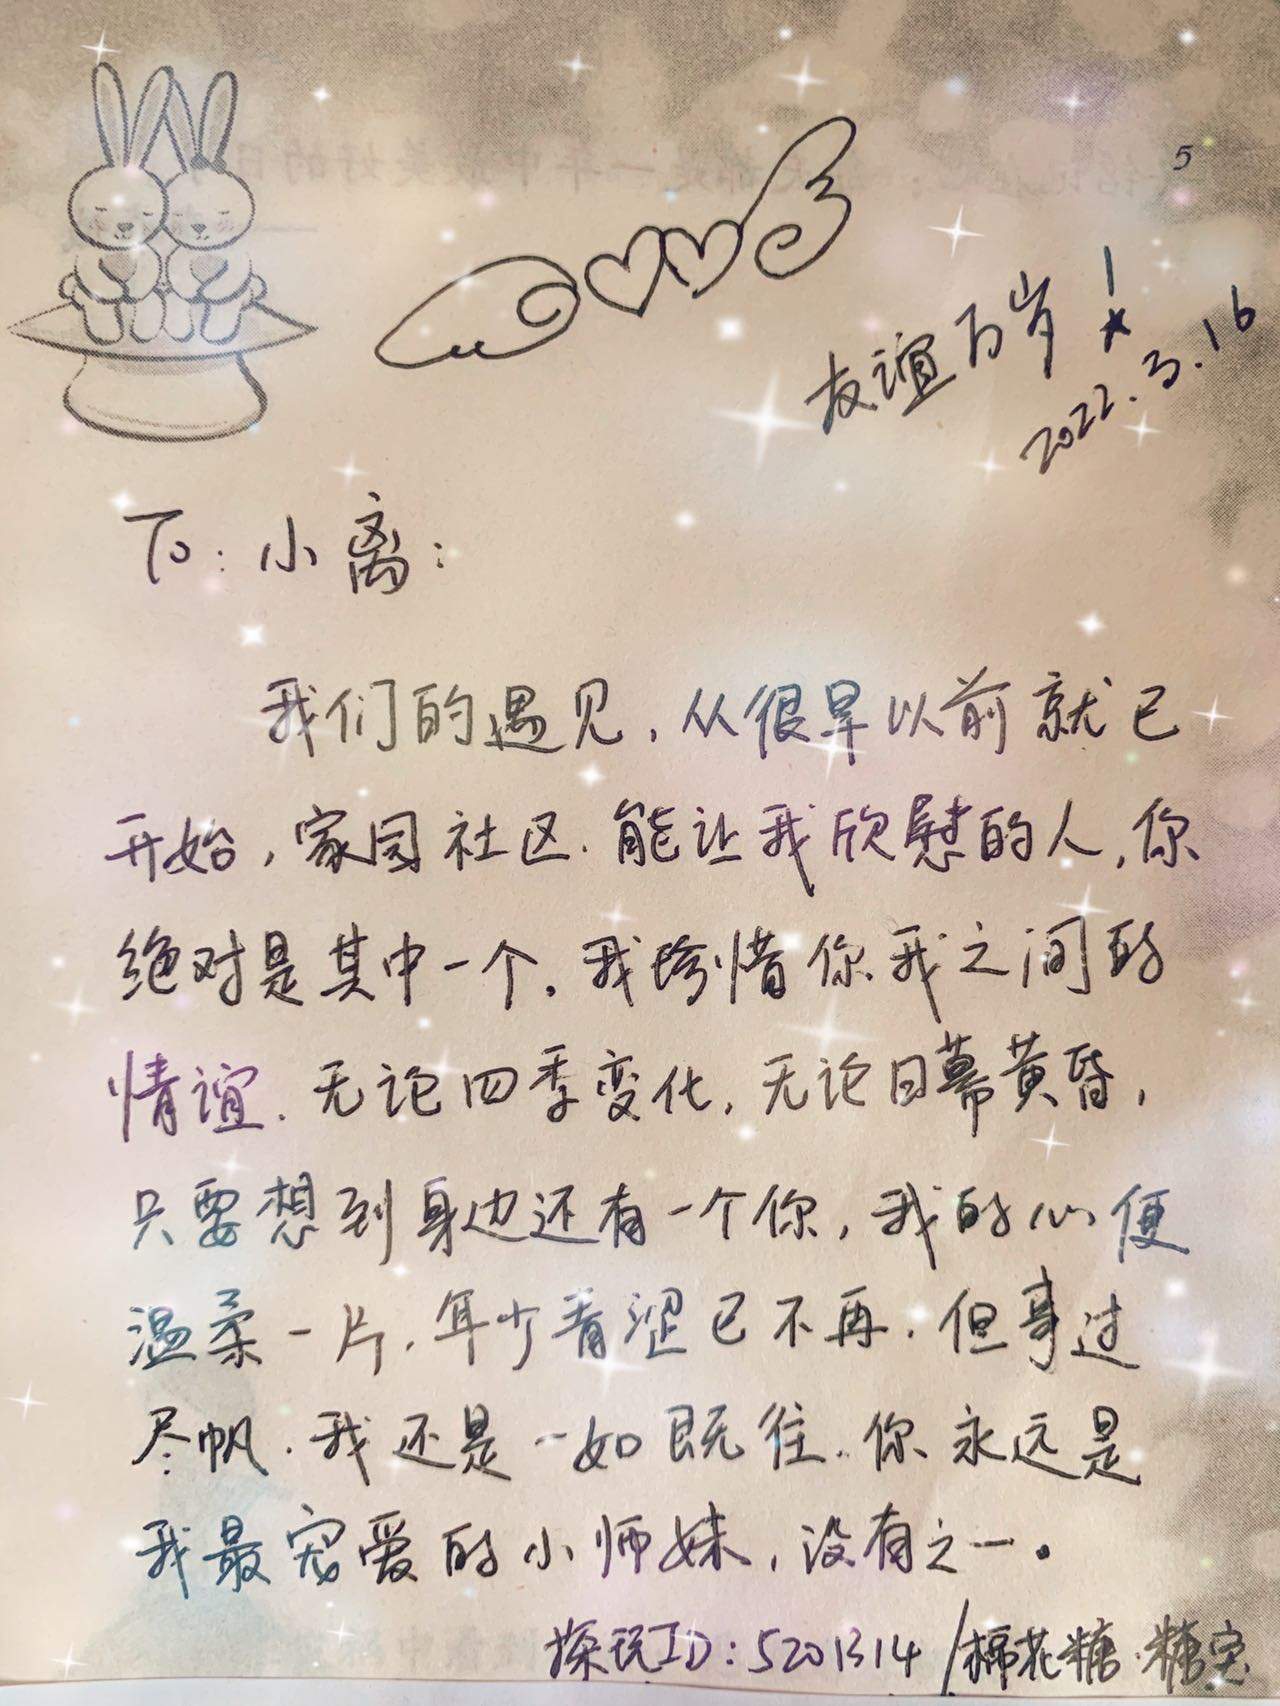 5
友谊万岁！
2022.3.16
To：小离：
我们的遇见，从很早以前就已
开始，家园社区.能让我欣慰的人，你
绝对是其中一个。我珍惜你我之间的
情谊.无论四季变化，无论日幕黄昏，
只要想到身边还有一个你，我的心便
温柔一片，年少青涩已不再.但事过
尽帆.我还是一如既往.你永远是
我最宠爱的小师妹，没有之一。
探玩ID：5201314/棉花糖·糖宝